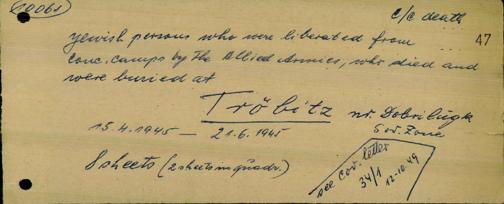 10061
c/c death
47
Jewish persons who were liberated from
conc. camps by the Allied Armies, who died and
were buried at
Tröbitz nr. Dobrilugk
Sov. Zone
15.4.1945 — 21.6.1945
8 sheets (2 sheets in quadr.)
see cov. letter
34/1 12.10.49